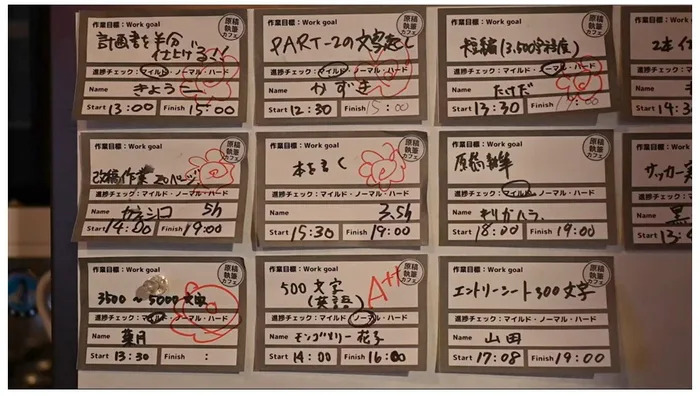 作業目標：Work goal
原稿執筆カフェ
計画書を半分
仕上げる!!
進捗チェック：マイルド・ノーマル・ハード
Name きょうこ
Start 13:00 Finish 15:00
作業目標：Work goal
原稿執筆カフェ
PART-2の文字起こし
進捗チェック：マイルド・ノーマル・ハード
Name かずき
Start 12:30 Finish 15:00
作業目標：Work goal
原稿執筆カフェ
短編(3,500字程度)
進捗チェック：マイルド・ノーマル・ハード
Name たけだ
Start 13:30 Finish
作業目標
2本
進捗チェック
Name
Start
作業目標：Work goal
原稿執筆カフェ
改稿作業 20ページ
進捗チェック：マイルド・ノーマル・ハード
Name カネシロ 5h
Start 14:00 Finish 19:00
作業目標：Work goal
原稿執筆カフェ
本を書く
進捗チェック：マイルド・ノーマル・ハード
Name 3.5h
Start 15:30 Finish 19:00
作業目標：Work goal
原稿執筆カフェ
原稿執筆
進捗チェック：マイルド・ノーマル・ハード
Name
Start 18:00 Finish 19:00
作業目標
サッカー
進捗チェック
Name 黒
Start
作業目標：Work goal
原稿執筆カフェ
3500～5000文字
進捗チェック：マイルド・ノーマル・ハード
Name 葉月
Start 13:30 Finish :
作業目標：Work goal
原稿執筆カフェ
500文字
(英語)
A++
進捗チェック：マイルド・ノーマル・ハード
Name モンゴメリー 花子
Start 14:00 Finish 16:00
作業目標：Work goal
原稿執筆カフェ
エントリーシート300文字
進捗チェック：マイルド・ノーマル・ハード
Name 山田
Start 17:08 Finish 19:00